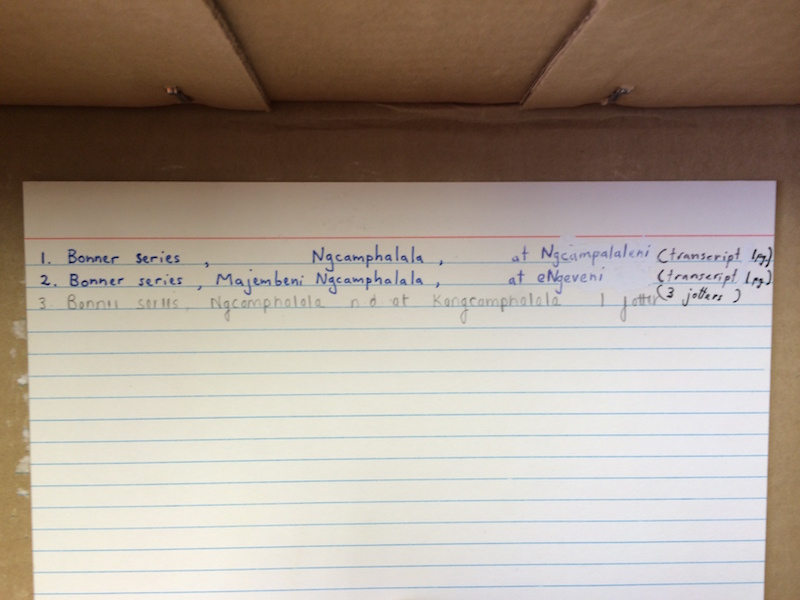 1. Bonner series, Ngcamphalala, at Ngcampalaleni (transcript 1pg)
2. Bonner series, Majembeni Ngcamphalala, at eNgeveni (transcript 1pg)
(3 jotters)
3. Bonner series, Ngcamphalala n d at Kangcamphalala 1 jotter